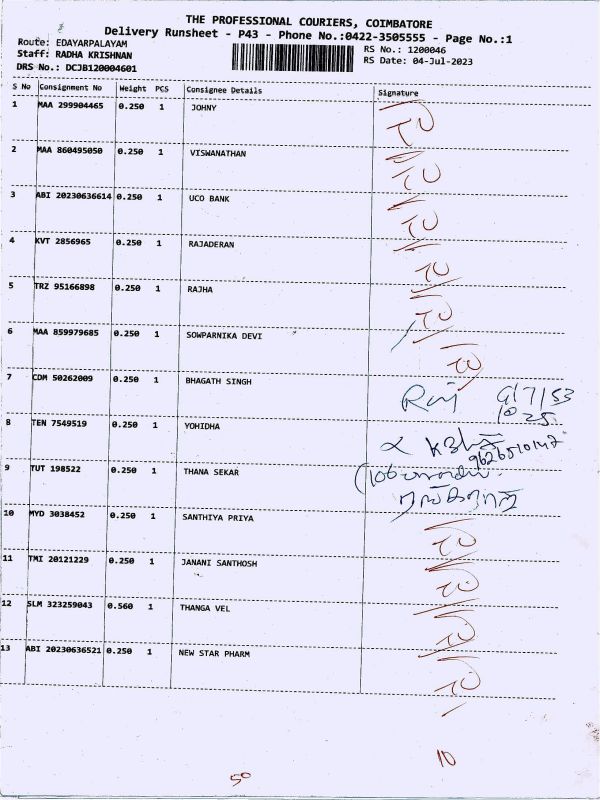 THE PROFESSIONAL COURIERS, COIMBATORE
Delivery Runsheet - P43 - Phone No.:0422-3505555 - Page No.:1
Route: EDAYARPALAYAM
Staff: RADHA KRISHNAN
DRS No.: DCJB120004601
RS No.: 1200046
RS Date: 04-Jul-2023
S No Consignment No Weight PCS Consignee Details Signature
1 MAA 299904465 0.250 1 JOHNY
2 MAA 860495050 0.250 1 VISWANATHAN
3 ABI 20230636614 0.250 1 UCO BANK
4 KVT 2856965 0.250 1 RAJADERAN
5 TRZ 95166898 0.250 1 RAJHA
6 MAA 859979685 0.250 1 SOWPARNIKA DEVI
7 CDM 50262009 0.250 1 BHAGATH SINGH
8 TEN 7549519 0.250 1 YOHIDHA
9 TUT 198522 0.250 1 THANA SEKAR
10 MYD 3038452 0.250 1 SANTHIYA PRIYA
11 TMI 20121229 0.250 1 JANANI SANTHOSH
12 SLM 323259043 0.560 1 THANGA VEL
13 ABI 20230636521 0.250 1 NEW STAR PHARM
10
50